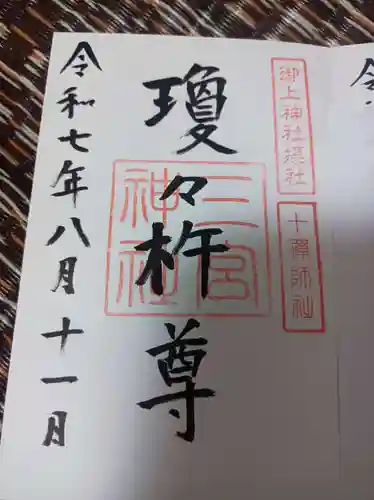 御上神社境社
十禅師社
瓊々杵尊
三宮
神社
令和七年八月十一月
令